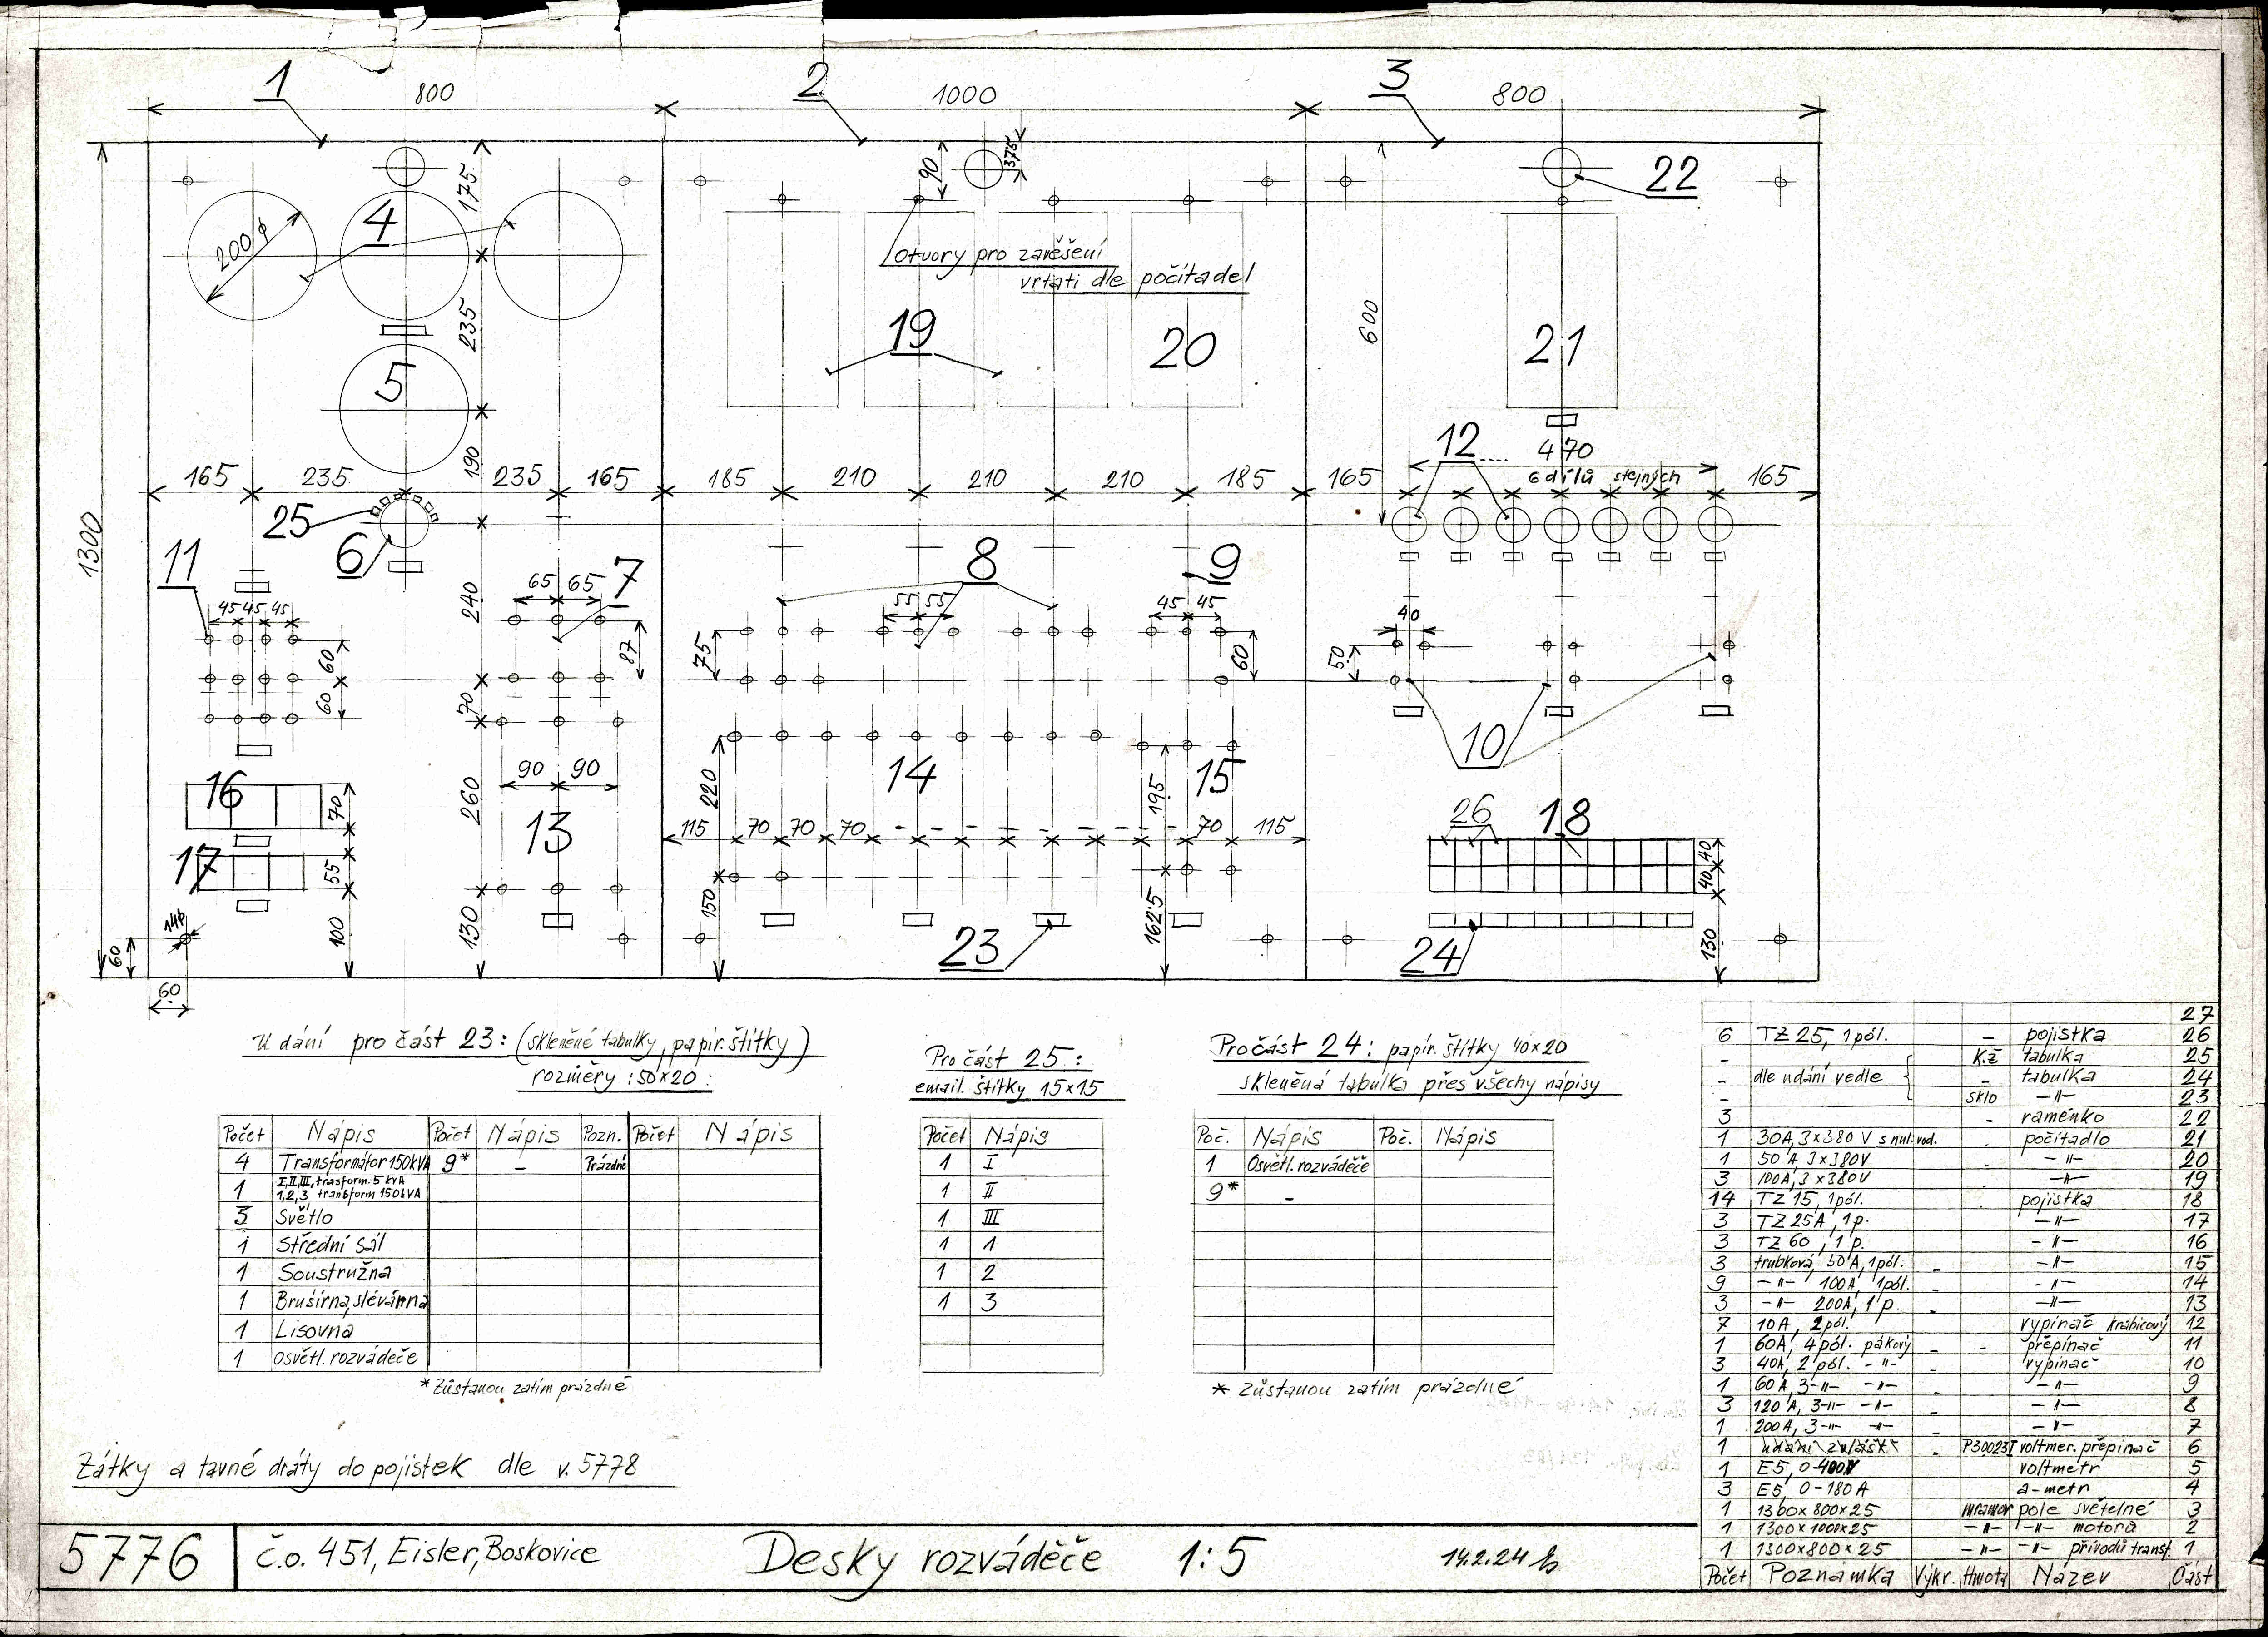 1
800
2
1000
3
800
175
90
37,5
22
4
200 ϕ
otvory pro zavěšení
vrtati dle počítadel
235
600
19
20
21
5
12
470
190
6 dílů stejných
165
235
235
165
185
210
210
210
185
165
165
25
1300
11
6
7
8
9
65
65
240
45
45
45
55
55
45
45
40
60
60
87
75
60
50
70
10
14
15
90
90
220
195
16
70
260
13
26
18
115
70
70
70
70
115
17
55
40
40
14ϕ
150
162,5
60
100
130
23
24
130
60
Udání pro část 23: (skleněné tabulky, papír. štítky)
rozměry: 50×20:
Počet Nápis Počet Nápis Pozn. Počet Nápis
4 Transformátor 150kVA 9* – Prázdné
1 I, II, III, trasform. 5 kVA
1, 2, 3 transform 150kVA
3 Světlo
1 Střední sál
1 Soustružna
1 Brusírna, slévárna
1 Lisovna
1 osvětl. rozváděče
* Zůstanou zatím prázdné
Pro část 25:
email. štítky 15×15
Počet Nápis
1 I
1 II
1 III
1 1
1 2
1 3
Pro část 24: papír. štítky 40×20
skleněná tabulka přes všechy nápisy
Poč. Nápis Poč. Nápis
1 Osvětl. rozváděče
9* –
* Zůstanou zatím prázdné
27
6 TZ 25, 1 pól. – pojistka 26
– Kž tabulka 25
– dle udání vedle – tabulka 24
– sklo –"– 23
3 - raménko 22
1 30A, 3×380 V s nul. vod. počítadlo 21
1 50 A, 3×380V –"– 20
3 100A, 3×380V –"– 19
14 TZ 15, 1 pól. pojistka 18
3 TZ 25A, 1 p. –"– 17
3 TZ 60, 1 p. –"– 16
3 trubková, 50 A, 1 pól. –"– 15
9 –"– 100A, 1pól. –"– 14
3 –"– 200A, 1 p. –"– 13
7 10 A, 2 pól. vypínač krabicový 12
1 60A, 4 pól. pákový - přepínač 11
3 40A, 2 pól. -"- vypínač 10
1 60 A, 3-"- -"- –"– 9
3 120 A, 3-"- -"- –"– 8
1 200 A, 3-"- -"- –"– 7
1 udání zvlášť P30023I voltmer. přepínač 6
1 E5, 0-400V voltmetr 5
3 E5, 0-180 A a-metr 4
1 1300×800×25 mramor pole světelné 3
1 1300×1000×25 –"– –"– motorů 2
1 1300×800×25 –"– –"– přívodů transf. 1
Počet Poznámka Výkr. Hmota Název Část
Zátky a tavné dráty do pojistek dle v. 5778
5776
č.o. 451, Eisler, Boskovice
Desky rozváděče 1:5
14.2.24